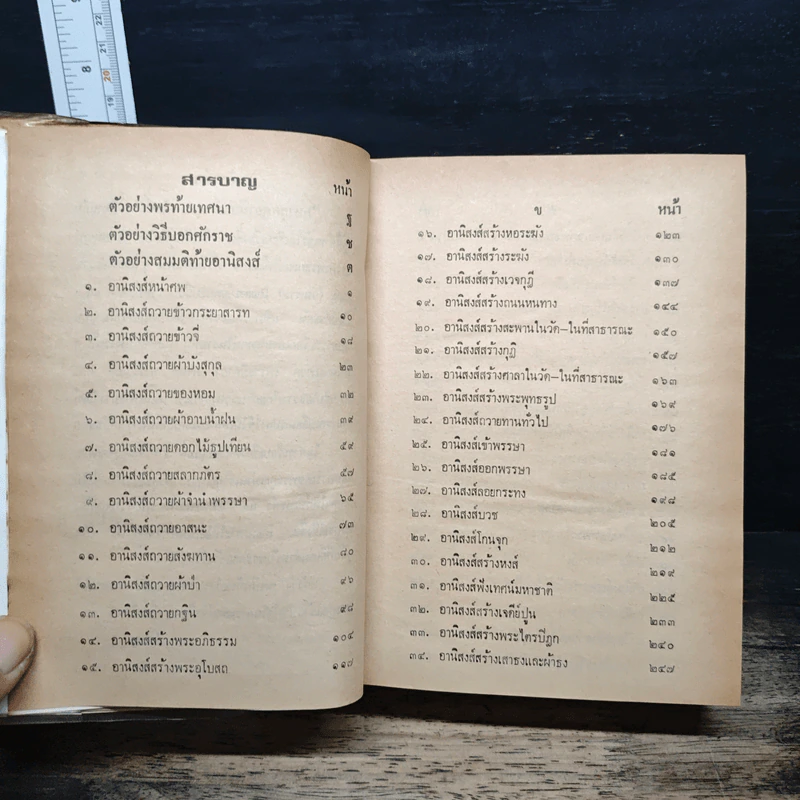 สารบาญ
หน้า
ตัวอย่างพรท้ายเทศนา ฐ
ตัวอย่างวิธีบอกศักราช ช
ตัวอย่างสมมติท้ายอานิสงส์ ต
๑. อานิสงส์หน้าศพ ๑
๒. อานิสงส์ถวายข้าวกระยาสารท ๑๐
๓. อานิสงส์ถวายข้าวจี่ ๑๘
๔. อานิสงส์ถวายผ้าบังสุกุล ๒๓
๕. อานิสงส์ถวายของหอม ๓๒
๖. อานิสงส์ถวายผ้าอาบน้ำฝน ๓๙
๗. อานิสงส์ถวายดอกไม้ธูปเทียน ๕๙
๘. อานิสงส์ถวายสลากภัตร ๕๗
๙. อานิสงส์ถวายผ้าจำนำพรรษา ๖๕
๑๐. อานิสงส์ถวายอาสนะ ๗๓
๑๑. อานิสงส์ถวายสังฆทาน ๘๐
๑๒. อานิสงส์ถวายผ้าป่า ๙๖
๑๓. อานิสงส์ถวายกฐิน ๙๘
๑๔. อานิสงส์สร้างพระอภิธรรม ๑๐๔
๑๕. อานิสงส์สร้างพระอุโบสถ ๑๑๗
ข หน้า
๑๖. อานิสงส์สร้างหอระฆัง ๑๒๓
๑๗. อานิสงส์สร้างระฆัง ๑๓๐
๑๘. อานิสงส์สร้างเวจกุฎี ๑๓๗
๑๙. อานิสงส์สร้างถนนหนทาง ๑๔๔
๒๐. อานิสงส์สร้างสะพานในวัด–ในที่สาธารณะ ๑๕๐
๒๑. อานิสงส์สร้างกุฏิ ๑๕๗
๒๒. อานิสงส์สร้างศาลาในวัด–ในที่สาธารณะ ๑๖๓
๒๓. อานิสงส์สร้างพระพุทธรูป ๑๖๙
๒๔. อานิสงส์ถวายทานทั่วไป ๑๗๖
๒๕. อานิสงส์เข้าพรรษา ๑๘๑
๒๖. อานิสงส์ออกพรรษา ๑๘๕
๒๗. อานิสงส์ลอยกระทง ๑๙๘
๒๘. อานิสงส์บวช ๒๐๕
๒๙. อานิสงส์โกนจุก ๒๑๒
๓๐. อานิสงส์สร้างหงส์ ๒๑๙
๓๑. อานิสงส์ฟังเทศน์มหาชาติ ๒๒๕
๓๒. อานิสงส์สร้างเจดีย์ปูน ๒๓๓
๓๓. อานิสงส์สร้างพระไตรปิฎก ๒๔๐
๓๔. อานิสงส์สร้างเสาธงและผ้าธง ๒๔๗
9
8
22
21
20
19